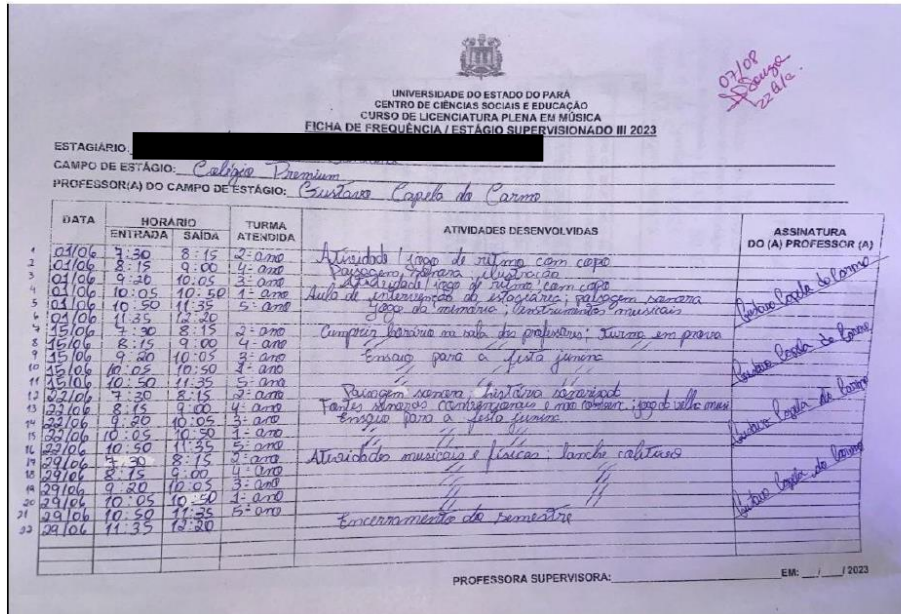 07/08
Souza
22 h/a
UNIVERSIDADE DO ESTADO DO PARÁ
CENTRO DE CIÊNCIAS SOCIAIS E EDUCAÇÃO
CURSO DE LICENCIATURA PLENA EM MÚSICA
FICHA DE FREQUÊNCIA / ESTÁGIO SUPERVISIONADO III 2023
ESTAGIÁRIO:
CAMPO DE ESTÁGIO: Colégio Premium
PROFESSOR(A) DO CAMPO DE ESTÁGIO: Gustavo Capela do Carmo
DATA HORÁRIO ENTRADA SAÍDA TURMA ATENDIDA ATIVIDADES DESENVOLVIDAS ASSINATURA DO (A) PROFESSOR (A)
1 01/06 7:30 8:15 2º ano Atividade/jogo de ritmo com copo
2 01/06 8:15 9:00 4º ano Paisagem sonora ilustração
3 01/06 9:20 10:05 3º ano Atividade/jogo de ritmo com copo
4 01/06 10:05 10:50 1º ano Aula de intervenção da estagiária; paisagem sonora
5 01/06 10:50 11:35 5º ano Jogo da memória; instrumentos musicais
6 01/06 11:35 12:20 Gustavo Capela do Carmo
7 15/06 7:30 8:15 2º ano Cumprir horário na sala dos professores; turma em prova
8 15/06 8:15 9:00 4º ano // // //
9 15/06 9:20 10:05 3º ano Ensaio para a festa junina
10 15/06 10:05 10:50 1º ano // // //
11 15/06 10:50 11:35 5º ano // // // Gustavo Capela do Carmo
12 22/06 7:30 8:15 2º ano Paisagem sonora; história sonorizada
13 22/06 8:15 9:00 4º ano Fontes sonoras convencionais e não conven.; jogo da velha
14 22/06 9:20 10:05 3º ano Ensaio para a festa junina
15 22/06 10:05 10:50 1º ano // // //
16 22/06 10:50 11:35 5º ano // // // Gustavo Capela do Carmo
17 29/06 7:30 8:15 2º ano Atividades musicais e físicas; lanche coletivo
18 29/06 8:15 9:00 4º ano // //
19 29/06 9:20 10:05 3º ano // //
20 29/06 10:05 10:50 1º ano // //
21 29/06 10:50 11:35 5º ano // //
22 29/06 11:35 12:20 Encerramento do semestre Gustavo Capela do Carmo
PROFESSORA SUPERVISORA: EM: __/__/2023